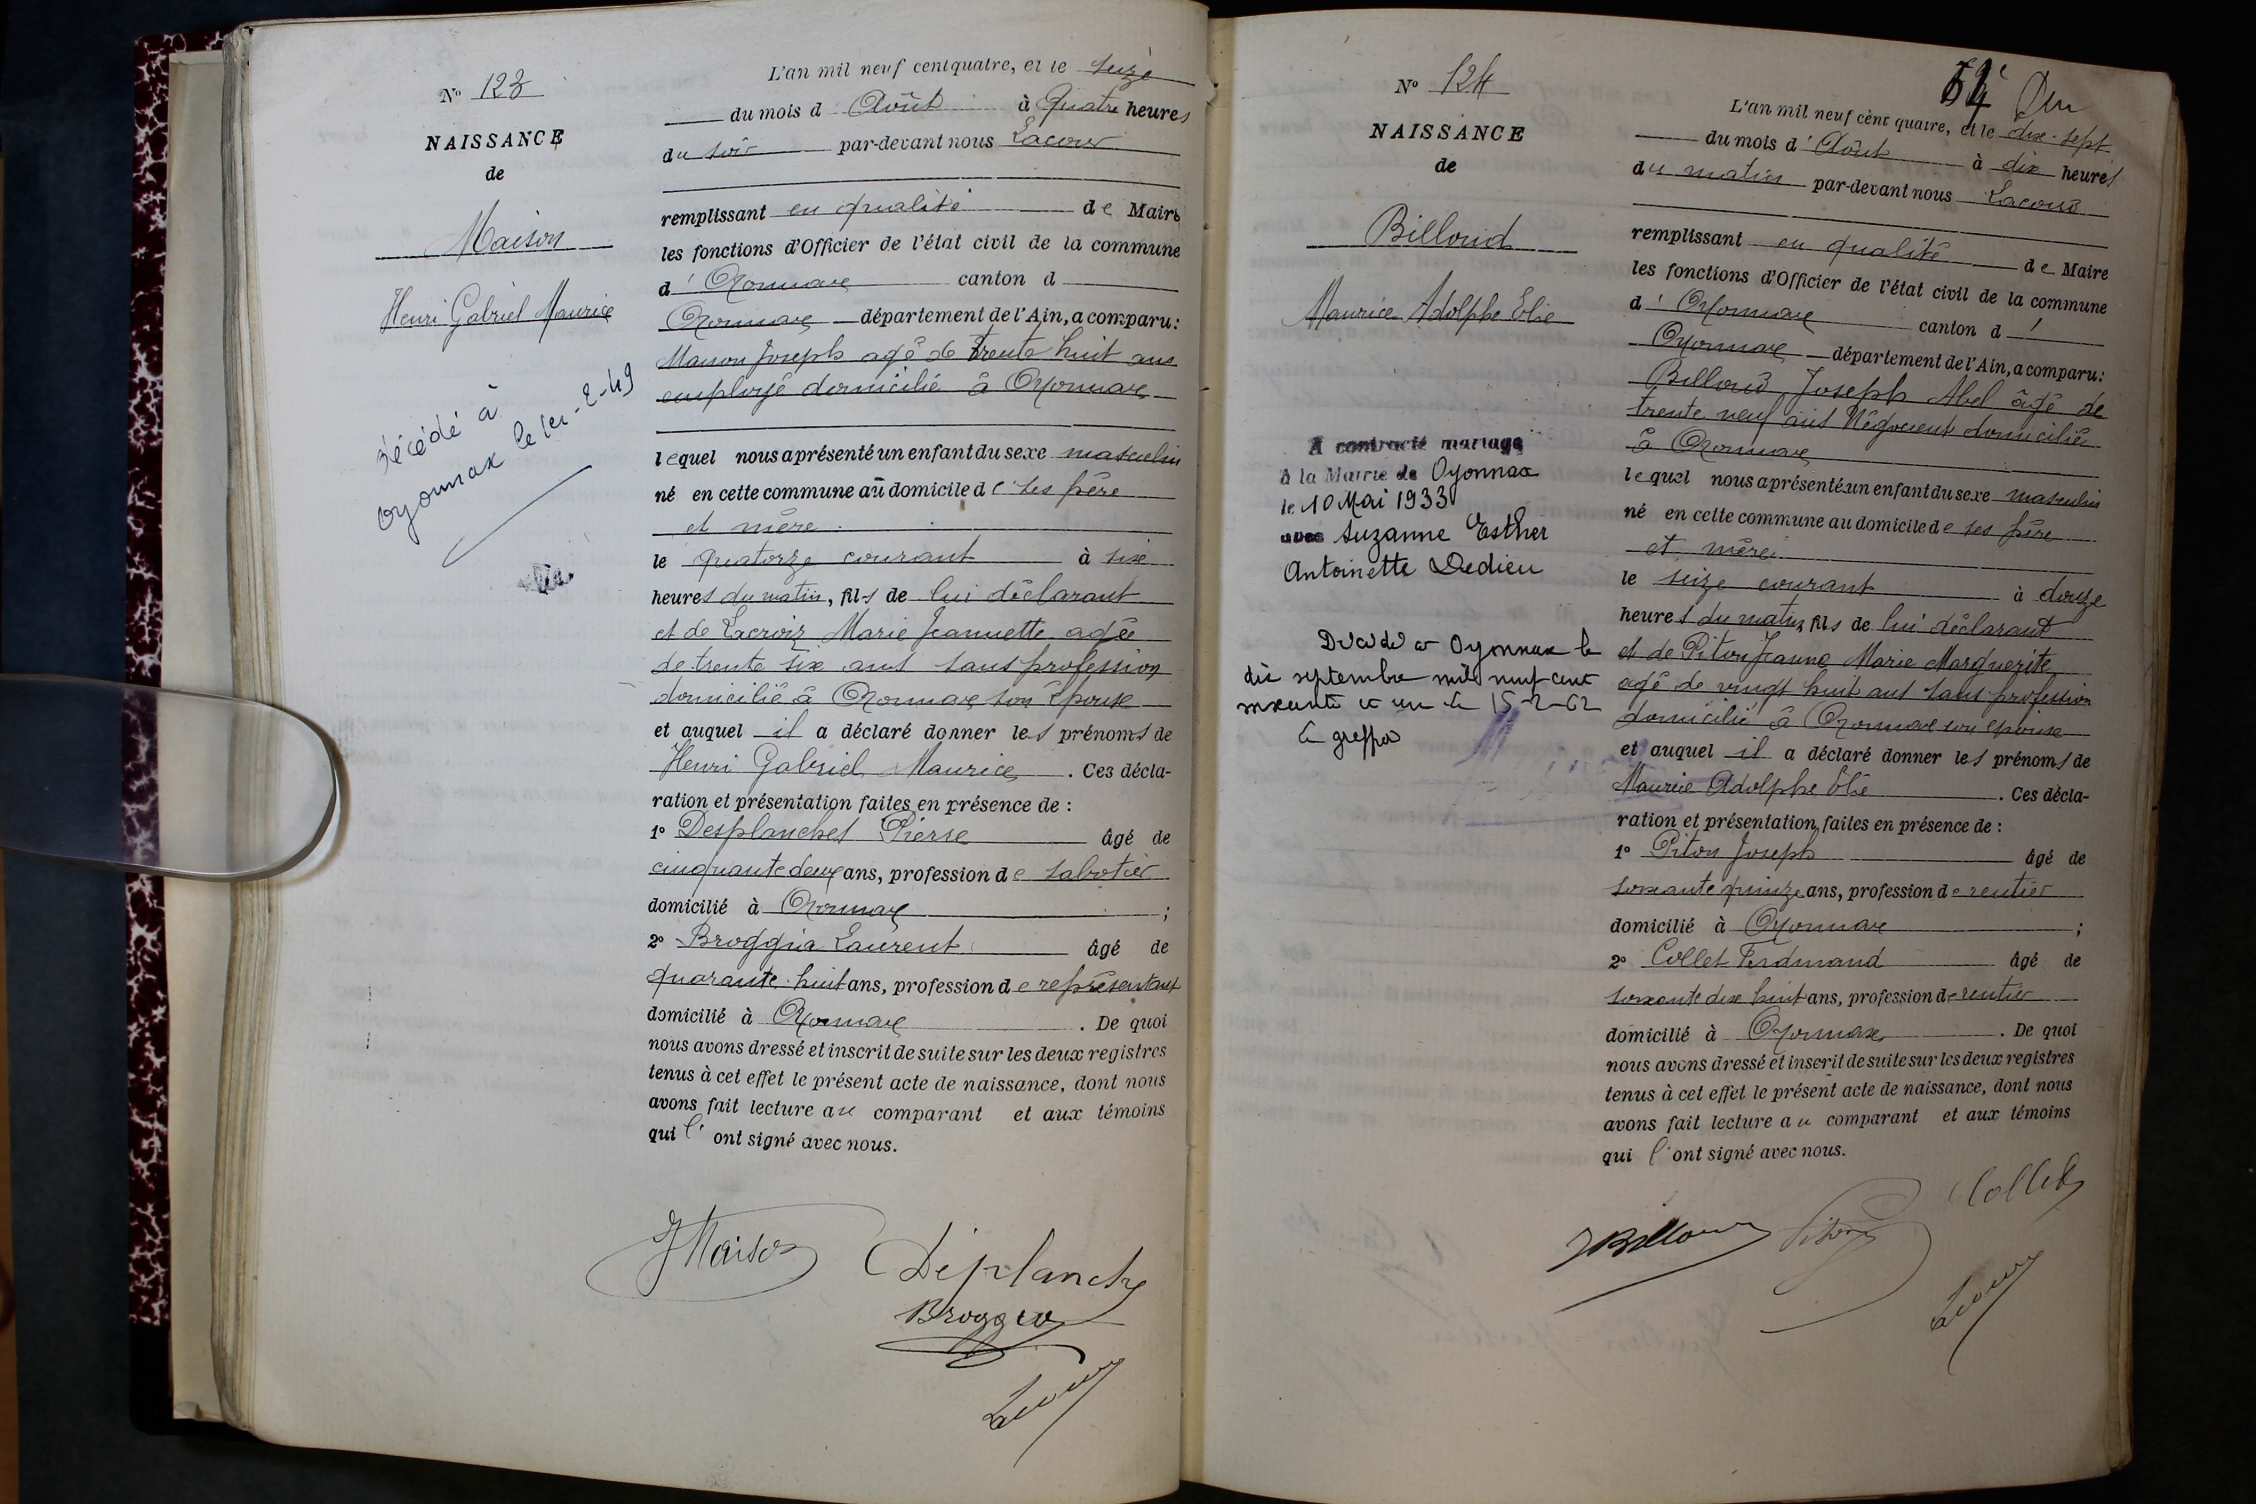 Nº 123
NAISSANCE
de
Maison
Henri Gabriel Maurice
Décédé à
Oyonnax le 1er-2-49
L'an mil neuf cent quatre, et le seize
du mois d Août à Quatre heures
du soir par-devant nous Lacour
remplissant en qualité de Maire
les fonctions d'Officier de l'état civil de la commune
d' Oyonnax canton d
Oyonnax département de l'Ain, a comparu:
Maison Joseph agé de trente huit ans
employé domicilié à Oyonnax
lequel nous a présenté un enfant du sexe masculin
né en cette commune au domicile de ses père
et mère
le quatorze courant à six
heures du matin, fils de lui déclarant
et de Lacroix Marie Jeannette agée
de trente six ans sans profession
domicilié à Oyonnax son épouse
et auquel il a déclaré donner les prénoms de
Henri Gabriel Maurice. Ces décla-
ration et présentation faites en présence de :
1º Desplanches Pierre âgé de
cinquante deux ans, profession de sabotier
domicilié à Oyonnax ;
2º Broggia Laurent âgé de
quarante-huit ans, profession de représentant
domicilié à Oyonnax. De quoi
nous avons dressé et inscrit de suite sur les deux registres
tenus à cet effet le présent acte de naissance, dont nous
avons fait lecture au comparant et aux témoins
qui l' ont signé avec nous.
J Maison
Déplanche
Broggia
Lacour
Nº 124
NAISSANCE
de
Billoud
Maurice Adolphe Elie
A contracté mariage
à la Mairie de Oyonnax
le 10 Mai 1933
avec Suzanne Esther
Antoinette Dedieu
Décédé à Oyonnax le
dix septembre mil neuf cent
soixante et un le 15-2-62
Le greffier
L'an mil neuf cent quatre, et le dix-sept
du mois d' Août à dix heures
du matin par-devant nous Lacour
remplissant en qualité de Maire
les fonctions d'Officier de l'état civil de la commune
d' Oyonnax canton d'
Oyonnax département de l'Ain, a comparu:
Billoud Joseph Abel âgé de
trente neuf ans Négociant domicilié
à Oyonnax
lequel nous a présenté un enfant du sexe masculin
né en cette commune au domicile de ses père
et mère
le seize courant à douze
heures du matin, fils de lui déclarant
et de Piton Jeanne Marie Marguerite
agé de vingt huit ans sans profession
domicilié à Oyonnax son épouse
et auquel il a déclaré donner les prénoms de
Maurice Adolphe Elie. Ces décla-
ration et présentation faites en présence de :
1º Piton Joseph âgé de
soixante quinze ans, profession de rentier
domicilié à Oyonnax ;
2º Collet Ferdinand âgé de
soixante dix huit ans, profession de rentier
domicilié à Oyonnax. De quoi
nous avons dressé et inscrit de suite sur les deux registres
tenus à cet effet le présent acte de naissance, dont nous
avons fait lecture au comparant et aux témoins
qui l' ont signé avec nous.
Collet
J Billoud Piton
Lacour